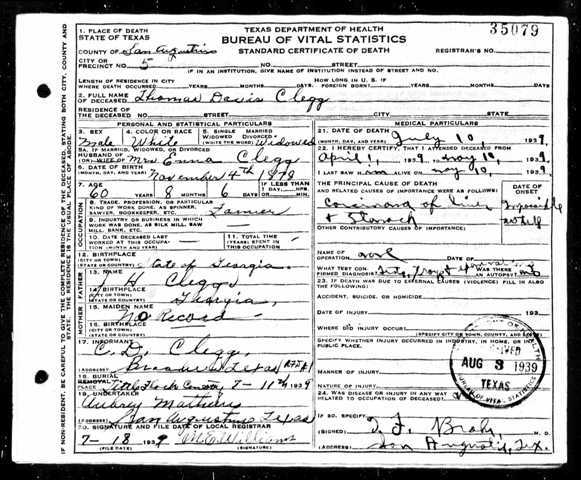 1. PLACE OF DEATH
STATE OF TEXAS
TEXAS DEPARTMENT OF HEALTH
BUREAU OF VITAL STATISTICS
STANDARD CERTIFICATE OF DEATH
35079
COUNTY OF San Augustine
REGISTRAR'S NO.
CITY OR PRECINCT NO. 5 NO. STREET
IF IN AN INSTITUTION, GIVE NAME OF INSTITUTION INSTEAD OF STREET AND NO.
LENGTH OF RESIDENCE IN CITY WHERE DEATH OCCURRED YEARS MONTHS DAYS. HOW LONG IN U. S. IF FOREIGN BORN? YEARS MONTHS DAYS
2. FULL NAME OF DECEASED Thomas Davis Clegg
RESIDENCE OF THE DECEASED NO. STREET CITY STATE
PERSONAL AND STATISTICAL PARTICULARS
3. SEX Male
4. COLOR OR RACE White
5. SINGLE MARRIED WIDOWED DIVORCED (WRITE THE WORD) Widowed
5A. IF MARRIED, WIDOWED OR DIVORCED HUSBAND OF OR WIFE OF Mrs Emma Clegg
6. DATE OF BIRTH (MONTH, DAY, AND YEAR) November 4th 1878
7. AGE YEARS MONTHS DAYS IF LESS THAN 1 DAY, HRS. MIN.
60 8 6
8. TRADE, PROFESSION, OR PARTICULAR KIND OF WORK DONE, AS SPINNER, SAWYER, BOOKKEEPER, ETC. Farmer
9. INDUSTRY OR BUSINESS IN WHICH WORK WAS DONE, AS SILK MILL, SAW MILL, BANK, ETC.
10. DATE DECEASED LAST WORKED AT THIS OCCUPATION (MONTH AND YEAR)
11. TOTAL TIME (YEARS) SPENT IN THIS OCCUPATION
12. BIRTHPLACE (CITY OR TOWN) STATE OR COUNTRY State of Georgia
FATHER
13. NAME J H Clegg
14. BIRTHPLACE (CITY OR TOWN) STATE OR COUNTRY Georgia
MOTHER
15. MAIDEN NAME No Record
16. BIRTHPLACE (CITY OR TOWN) STATE OR COUNTRY
17. INFORMANT C. D. Clegg
(ADDRESS)
18. BURIAL REMOVAL
7-11th 1939
19. UNDERTAKER
(ADDRESS) San Augustine Texas
20. SIGNATURE AND FILE DATE OF LOCAL REGISTRAR
7-18 1939
(FILE DATE) (SIGNATURE)
MEDICAL PARTICULARS
21. DATE OF DEATH (MONTH, DAY, AND YEAR) July 10 1939
22. I HEREBY CERTIFY THAT I ATTENDED DECEASED FROM
April 1, 1939, TO May 10, 1939
I LAST SAW H im ALIVE ON May 10, 1939
THE PRINCIPAL CAUSE OF DEATH AND RELATED CAUSES OF IMPORTANCE WERE AS FOLLOWS:
DATE OF ONSET
of liver
& Stomach
Impossible to tell
OTHER CONTRIBUTORY CAUSES OF IMPORTANCE WERE:
NAME OF OPERATION none
WHAT TEST CONFIRMED DIAGNOSIS WAS THERE AN AUTOPSY? no
23. IF DEATH WAS DUE TO EXTERNAL CAUSES (VIOLENCE) FILL IN ALSO THE FOLLOWING:
ACCIDENT, SUICIDE, OR HOMICIDE
DATE OF INJURY 19
WHERE DID INJURY OCCUR?
(SPECIFY CITY OR TOWN, COUNTY, AND STATE)
SPECIFY WHETHER INJURY OCCURRED IN INDUSTRY, IN HOME, OR IN PUBLIC PLACE.
MANNER OF INJURY
NATURE OF INJURY
24. WAS DISEASE OR INJURY IN ANY WAY RELATED TO OCCUPATION OF DECEASED
IF SO, SPECIFY
(SIGNED) M. D.
(ADDRESS) San Augustine, Tex.
AUG 3 1939
TEXAS